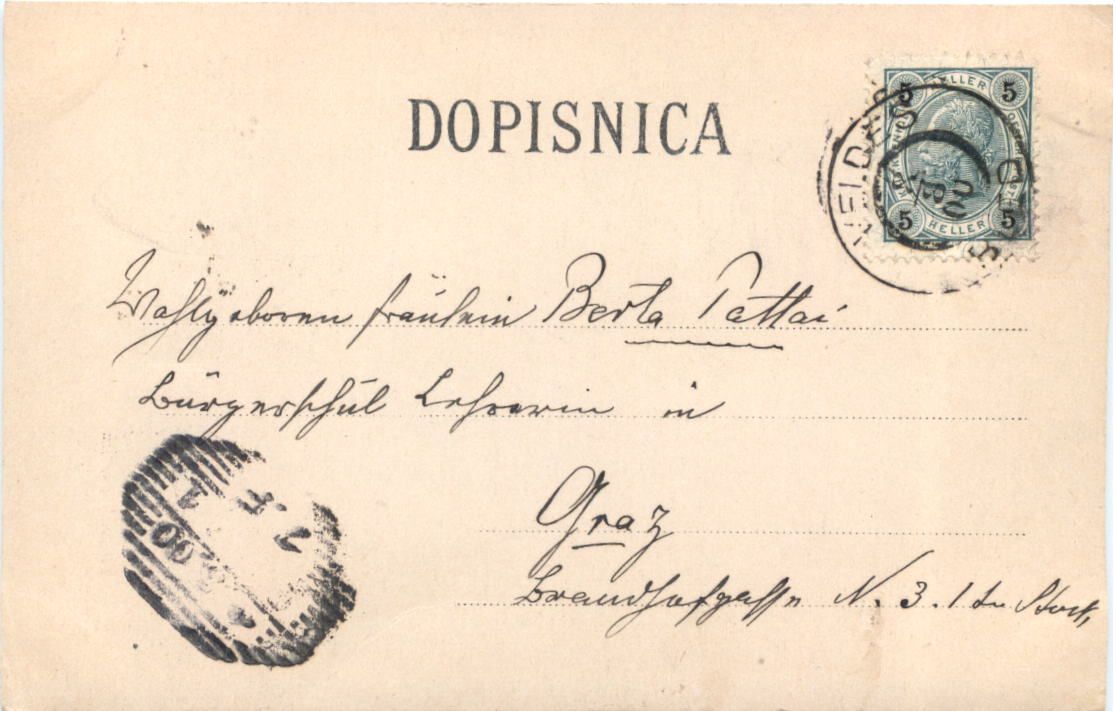 DOPISNICA
5 HELLER 5
5 HELLER 5
VELDES
BLED
Wohlgeboren Fräulein Berta Pattai
Bürgerschul Lehrerin in
Graz
Brandhofgasse N. 3. 1ter Stock,
7. F. 1